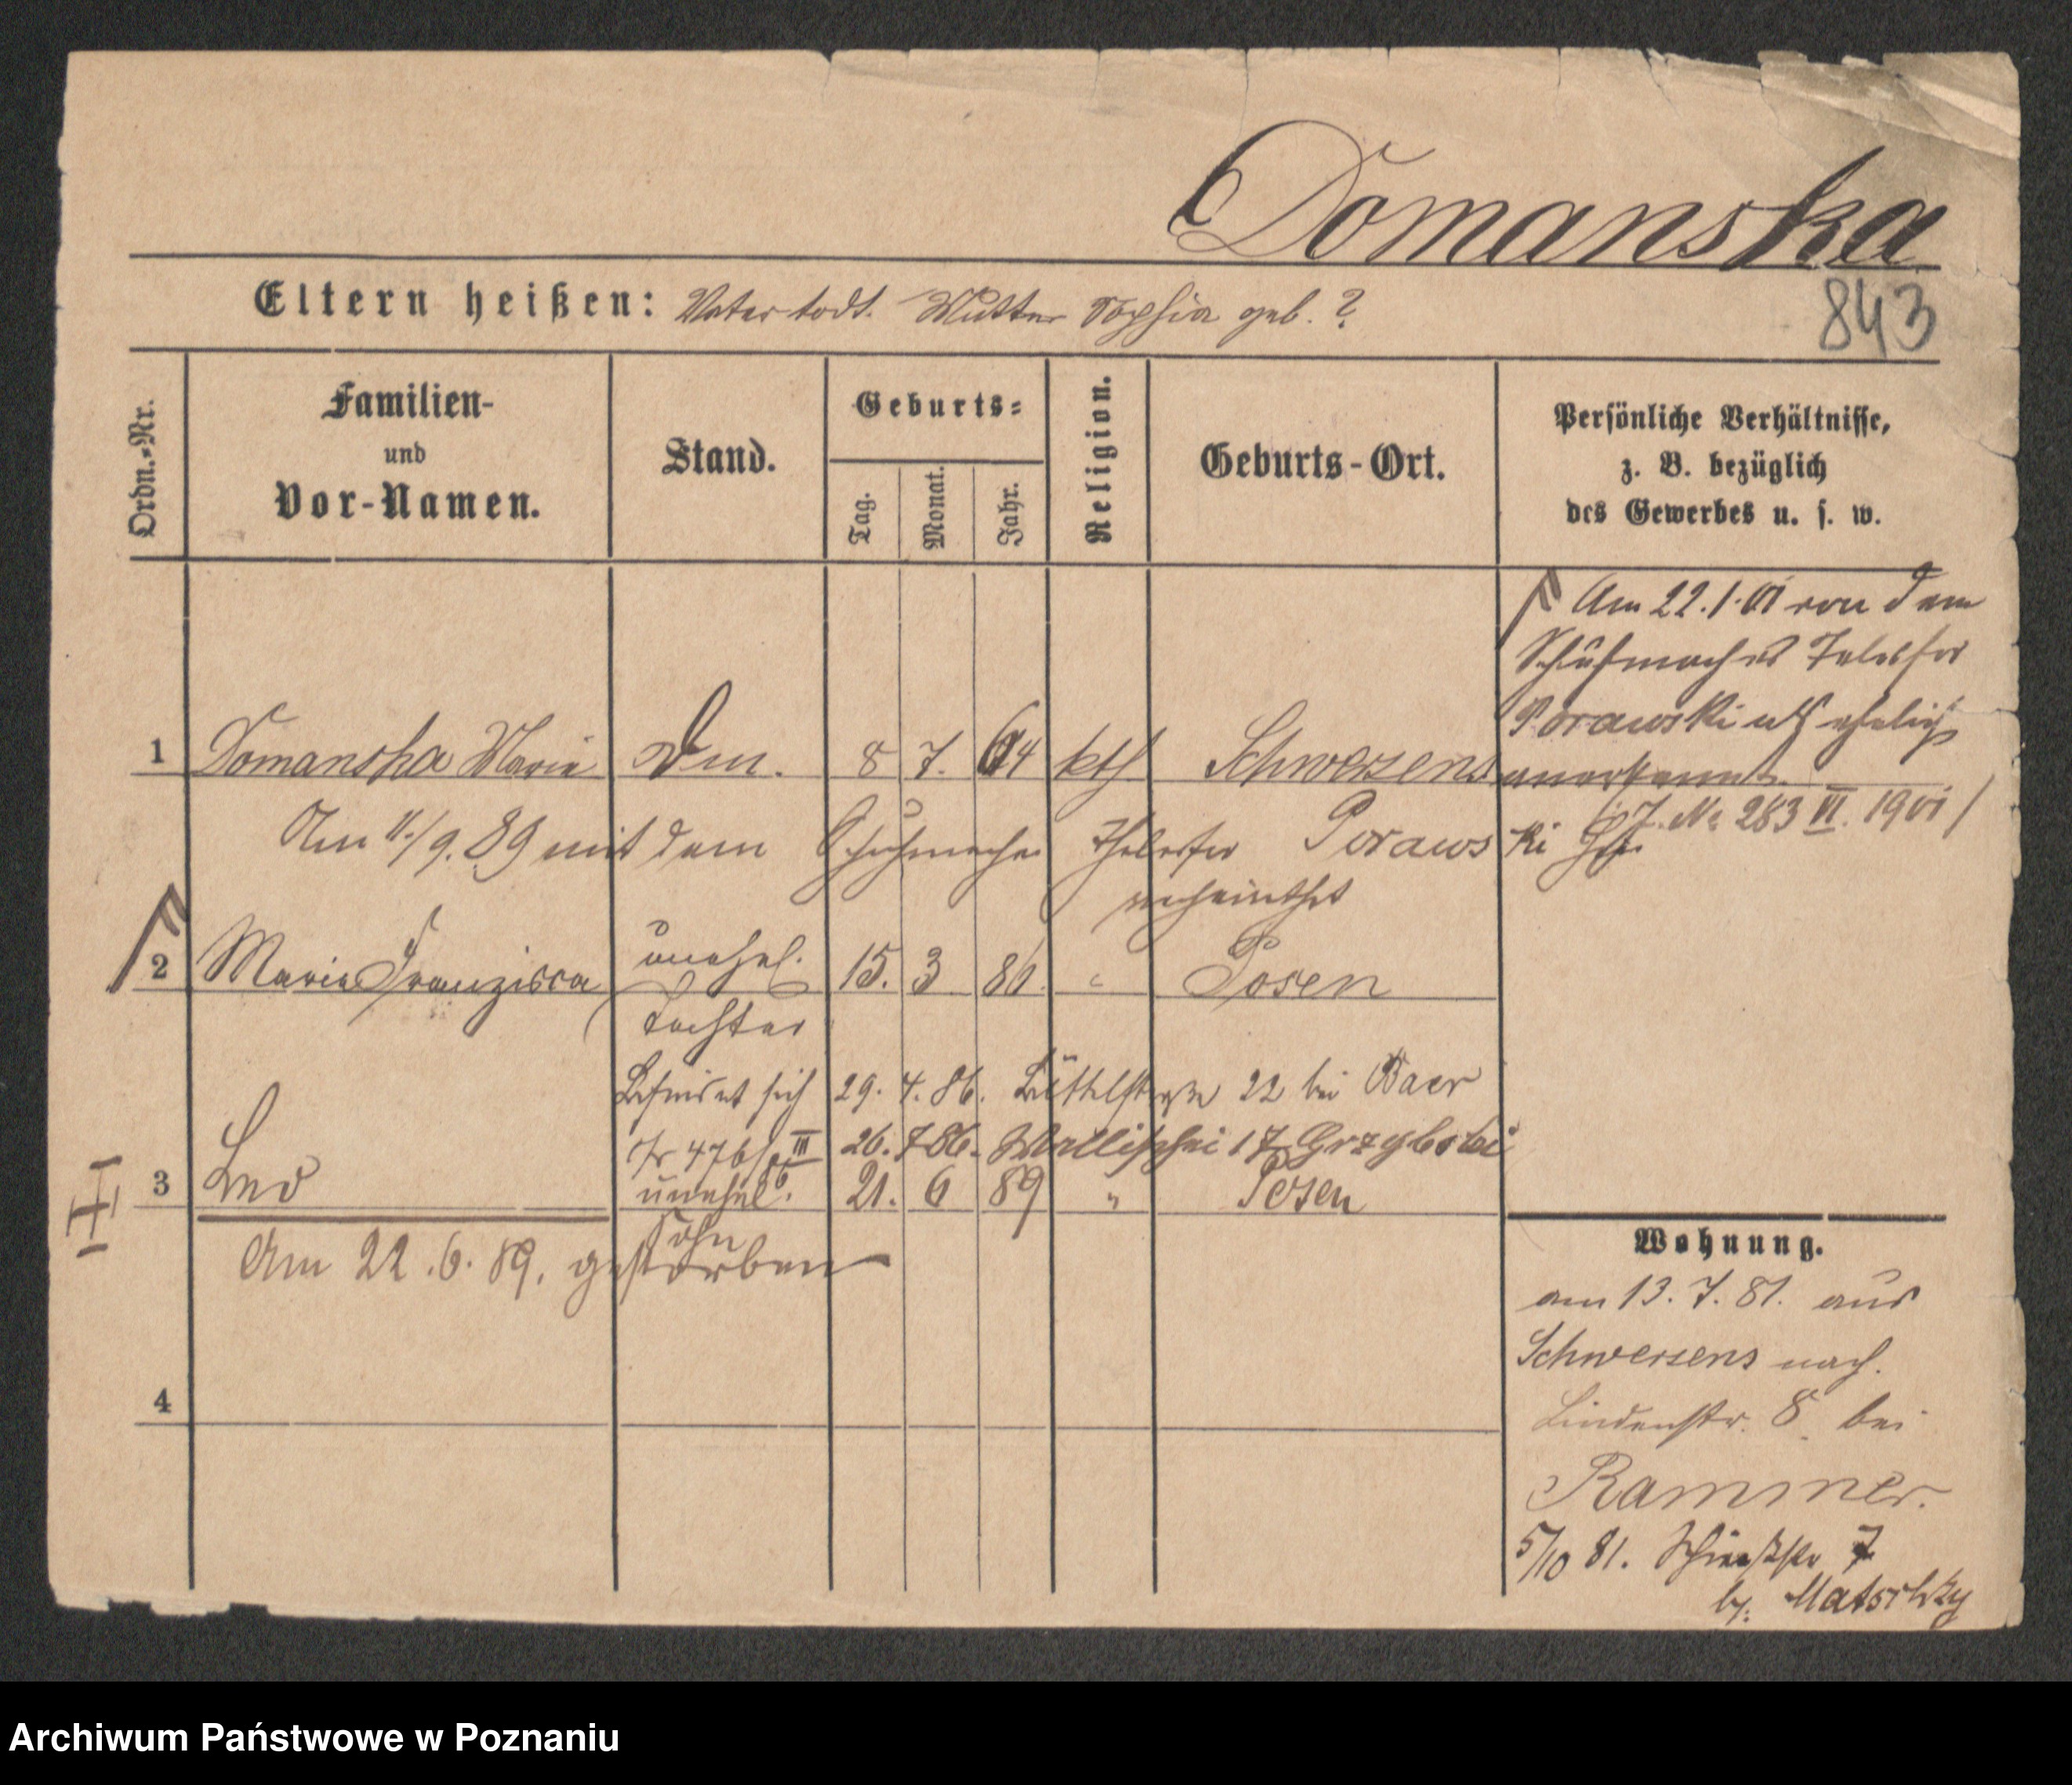 Domanska
843
Eltern heißen: Vater todt. Mutter Sophia geb. ?
Ordn.-Nr.
Familien-
und
Vor-Namen.
Stand.
Geburts-
Tag.
Monat.
Jahr.
Religion.
Geburts-Ort.
Persönliche Verhältnisse,
z. B. bezüglich
des Gewerbes u. s. w.
Am 22.1.01 von dem
Schuhmacher Telesfor
Porawski als ehelich
anerkannt.
J. № 283 VI. 1901
1 Domanska Marie 8 7. 64 kth Schwersenz
Am 11./9. 89 mit dem Schuhmacher Thelesfor Porawski
verheirathet
2 Maria Franzisca unehel. 15. 3 86. " Posen
Tochter
Befindet sich 29. 4. 86. Büttelstraße 22 bei Baer
476/ III 26. 7 86. Wallischei 17 Grzybski
86.
3 Leo unehel. 21. 6 89 " Posen
Sohn
Am 22.6.89. gestorben
4
Wohnung.
am 13.7.81. aus
Schwersenz nach
Lindenstr. 8 bei
Rammer.
5/10 81. 7
b/. Matschky
Archiwum Państwowe w Poznaniu